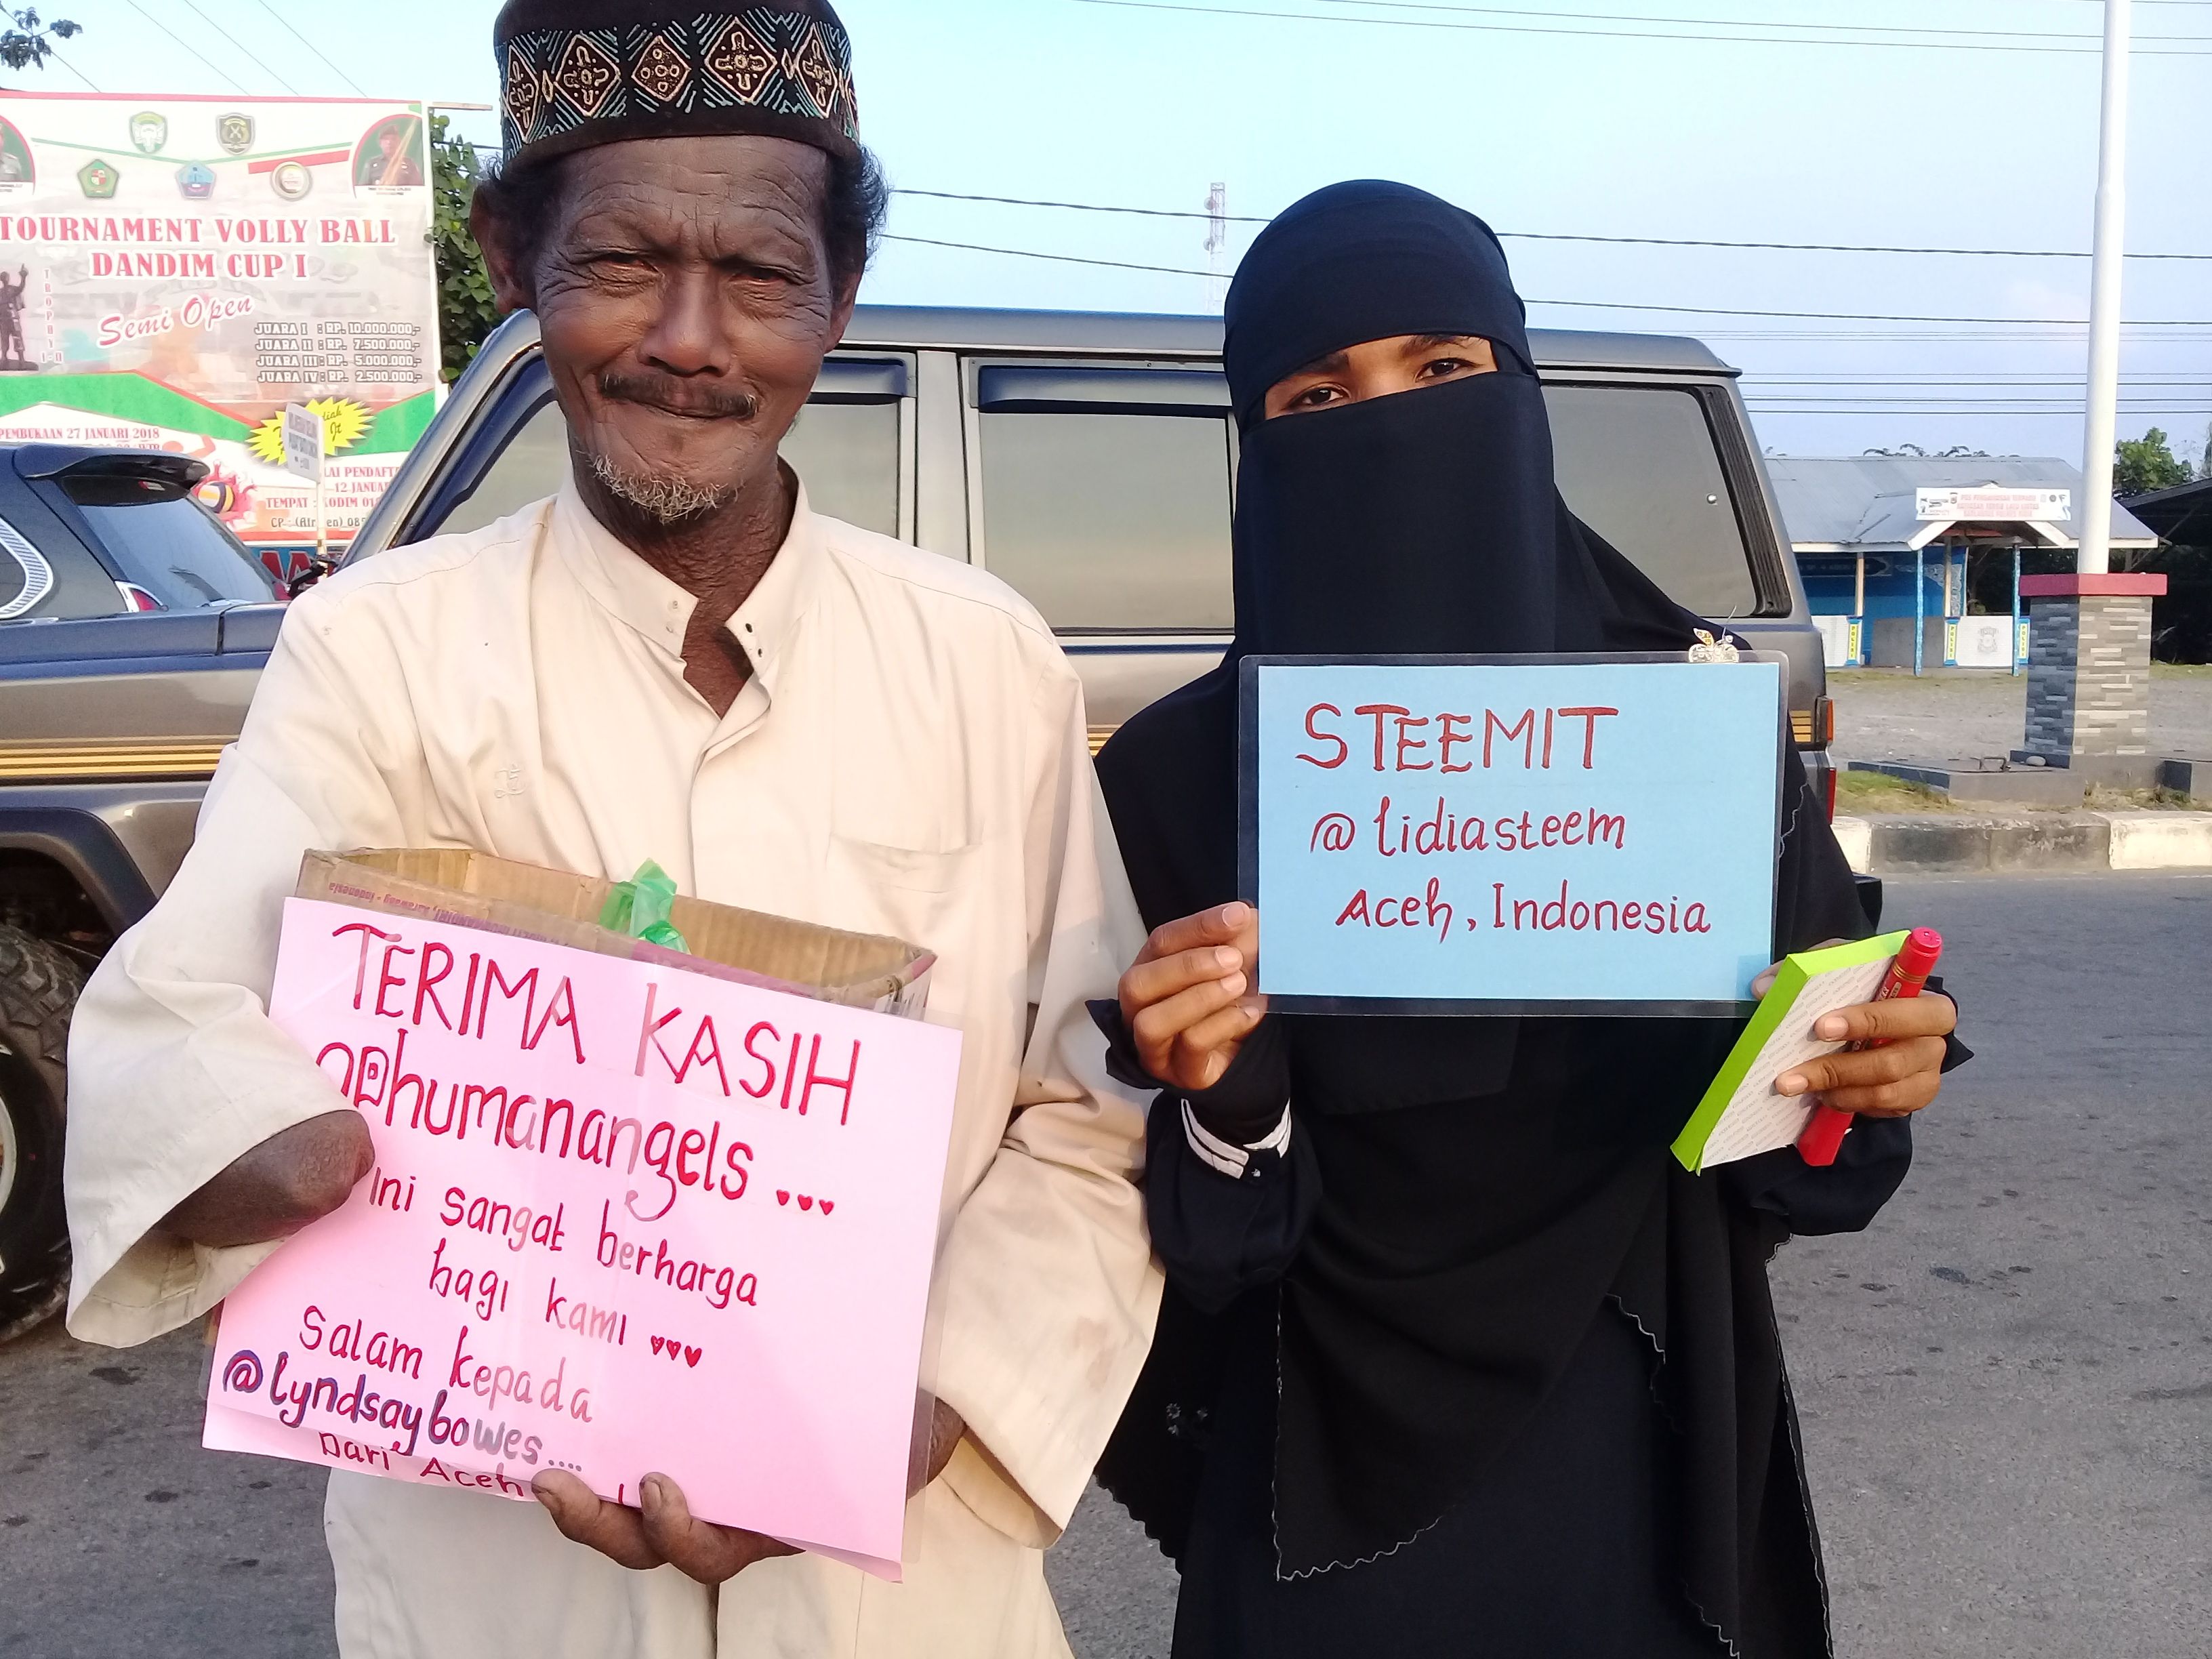 TOURNAMENT VOLLY BALL
DANDIM CUP I
Semi Open
JUARA I : RP. 10.000.000,-
JUARA II : RP. 7.500.000,-
JUARA III : RP. 5.000.000,-
JUARA IV : RP. 2.500.000,-
PEMBUKAAN 27 JANUARI 2018
12 JANUA
TEMPAT : KODIM
TERIMA KASIH
@humanangels ...
Ini sangat berharga
bagi kami
Salam kepada
@lyndsaybowes....
Dari Aceh
STEEMIT
@lidiasteem
Aceh, Indonesia